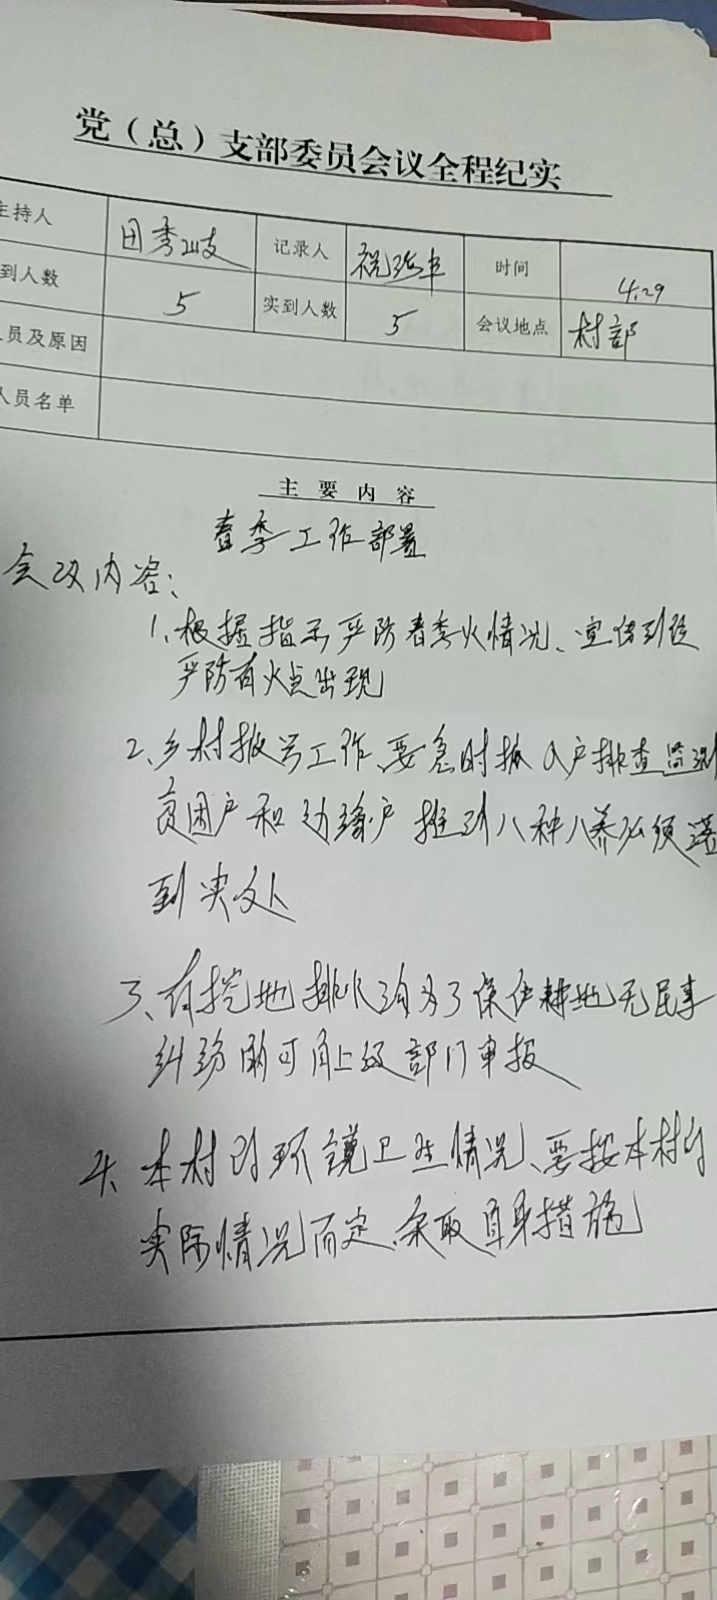 党（总）支部委员会议全程纪实
主持人 田秀 记录人 祝 时间 4.29
到人数 5 实到人数 5 会议地点 村部
员及原因
人员名单
主要内容
春季工作部署
会议内容：
1、根据指示严防春季火情况、宣传到位
严防有火点出现
2、乡村振兴工作、要急时抓入户排查监测
贫困户和边缘户推到八种八养必须落
到实处
3、有挖地排水沟为了保住耕地无民事
纠纷的可向上级部门申报
4、本村的环境卫生情况、要按本村的
实际情况而定、采取自身措施